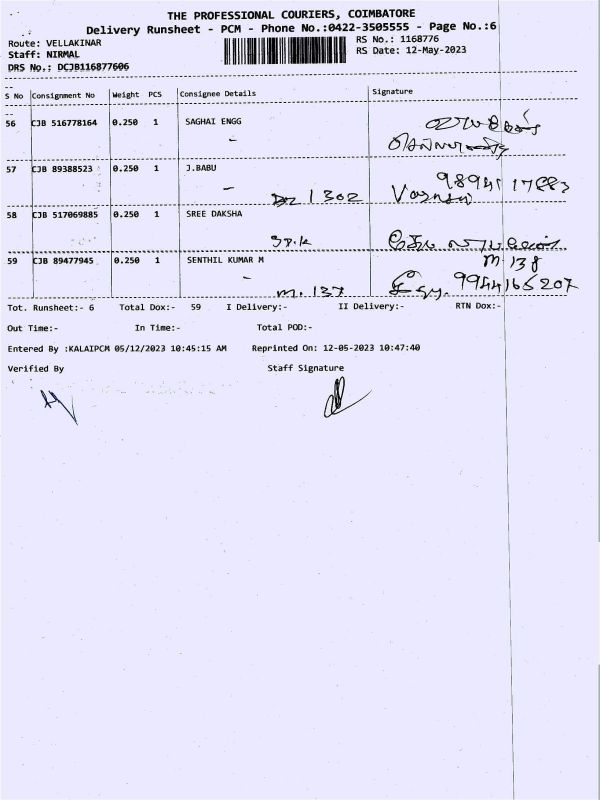 THE PROFESSIONAL COURIERS, COIMBATORE
Delivery Runsheet - PCM - Phone No.:0422-3505555 - Page No.:6
Route: VELLAKINAR
RS No.: 1168776
Staff: NIRMAL
RS Date: 12-May-2023
DRS No.: DCJB116877606
S No Consignment No Weight PCS Consignee Details Signature
56 CJB 516778164 0.250 1 SAGHAI ENGG
-
57 CJB 89388523 0.250 1 J.BABU
-
1302
58 CJB 517069885 0.250 1 SREE DAKSHA
59 CJB 89477945 0.250 1 SENTHIL KUMAR M M-138
-
m. 137 9944166207
Tot. Runsheet:- 6 Total Dox:- 59 I Delivery:- II Delivery:- RTN Dox:-
Out Time:- In Time:- Total POD:-
Entered By :KALAIPCM 05/12/2023 10:45:15 AM Reprinted On: 12-05-2023 10:47:40
Verified By Staff Signature